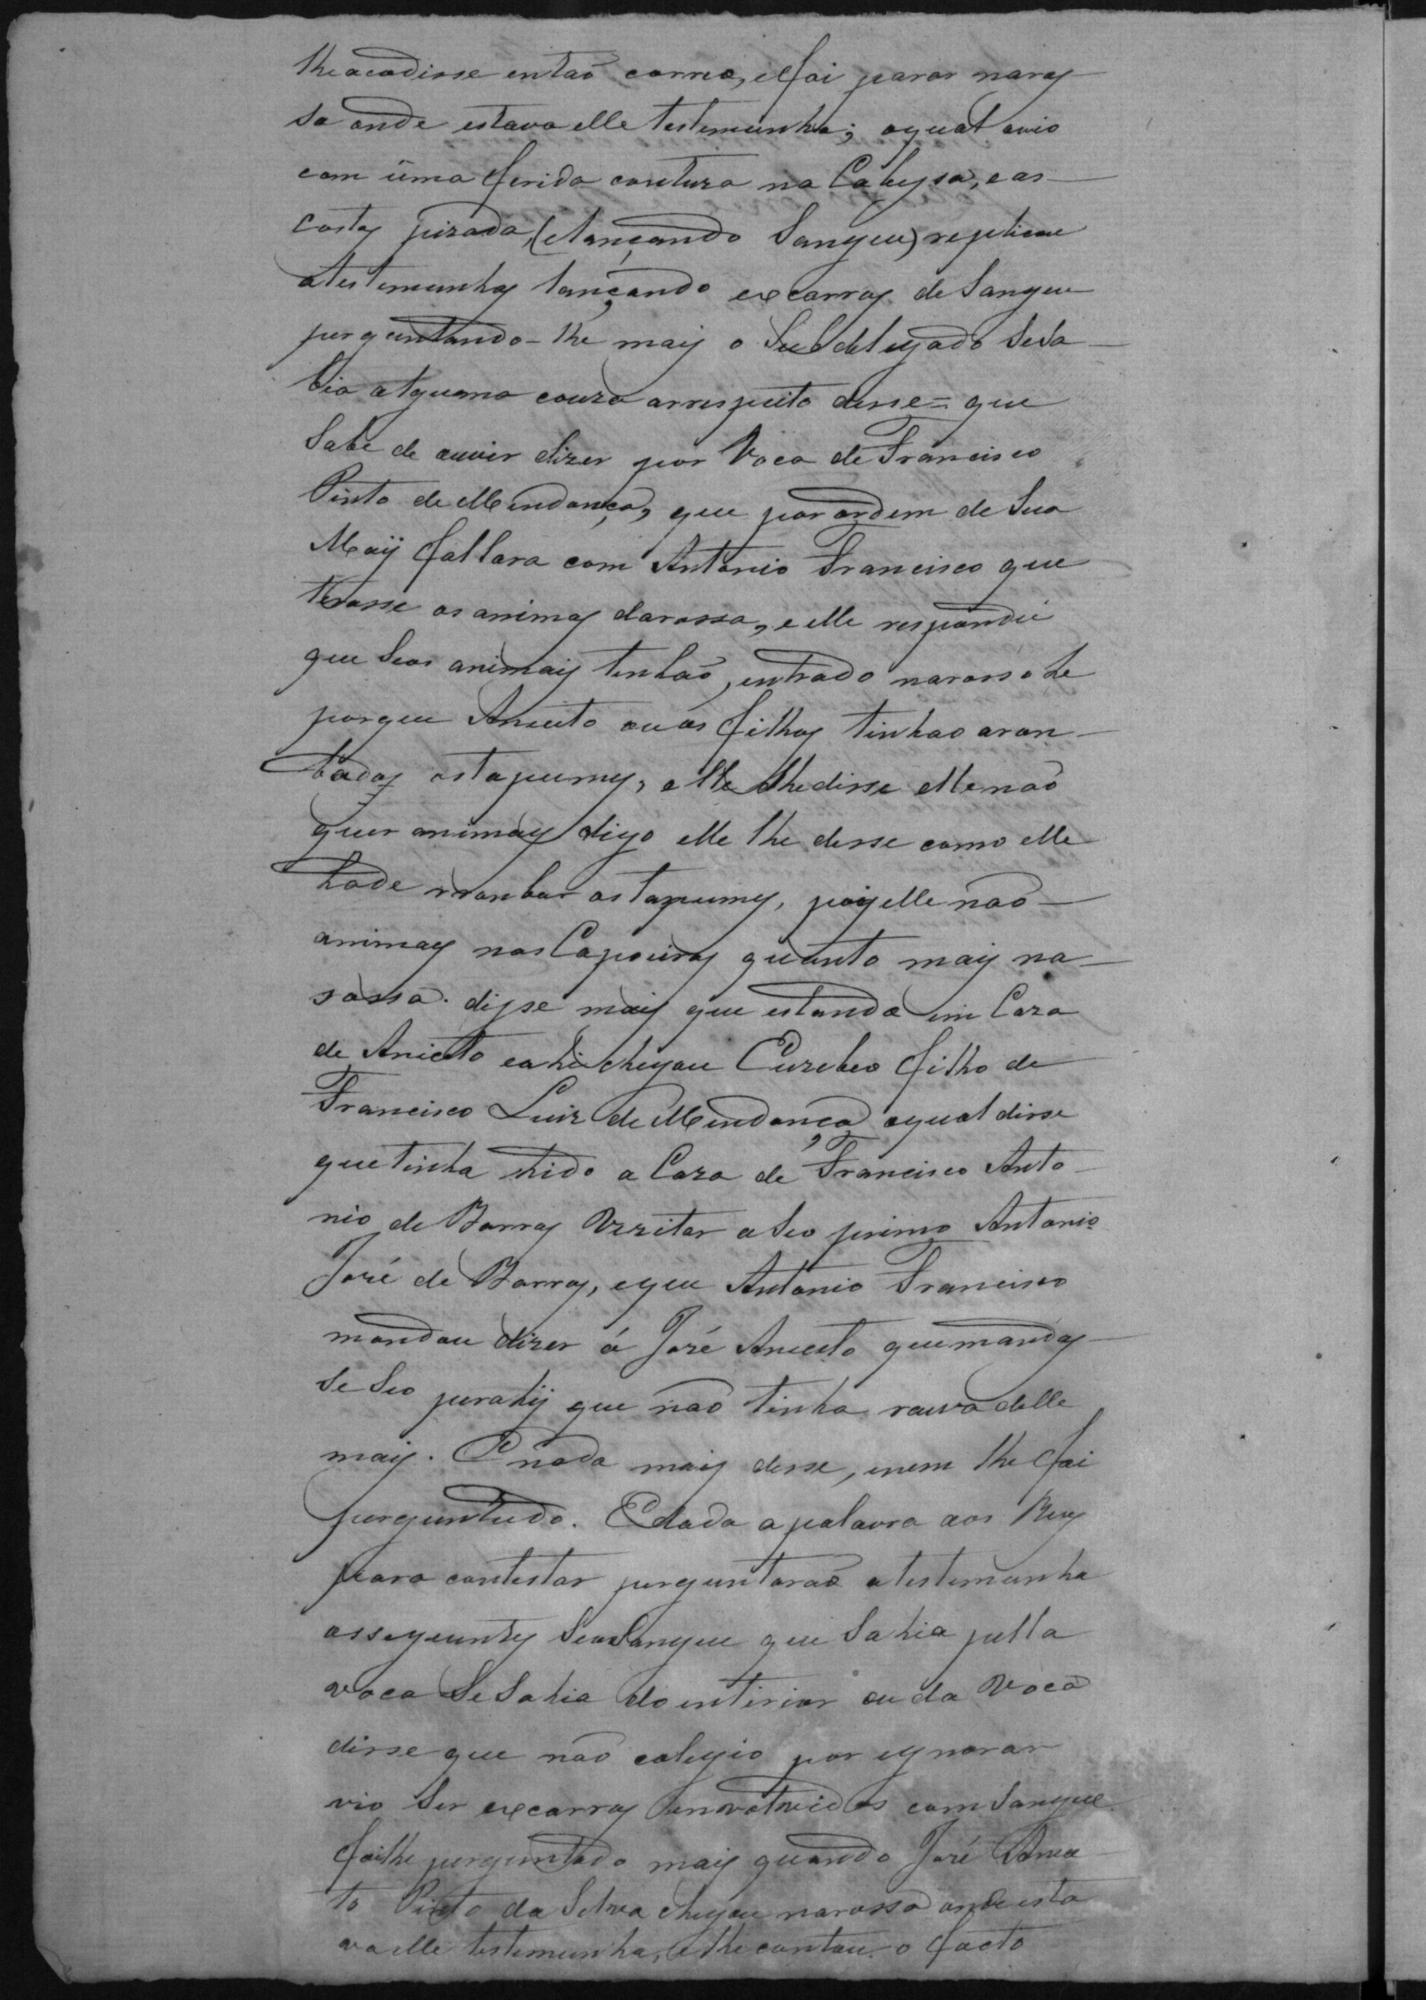 lhe acodisse entaõ correo, e foi parar naros
sa onde estava elle testemunha; oqual avio
com uma ferida contuza na Cabeysa, e as
costas pizada, (e lançando Sangue) replicou
a testemunhas lançando excarros de Sangue
perguntando-lhe mais o Subdelegado Sesa
bia alguma couza arrespeito disse = que
Sabe de ouvir dizer por Voca de Francisco
Pinto de Mendonça, que por ordem de Sua
Maÿ fallara com Antonio Francisco que
tirasse os animas darossa, e elle respondeu
que Seos animais tinhaõ, entrado narossa he
porque Aniceto ou os filhos tinhao aron
bados os tapumes, elle lhe disse elle naõ
quer animays digo elle lhe disse como elle
hade aronbar os tapumes, pois elle naõ
animays nas Capoeiras quanto mais na
rossa. disse mais que estando em Caza
de Aniceto eahi chegou Euzebeo filho de
Francisco Luiz de Mendonça oqual disse
que tinha hido a Caza de Francisco Anto
nio de Barros Vizitar a Seo primo Antonio
José de Barros, eque Antonio Francisco
mandou dizer á José Aniceto que mandas
se Seo pera hij que naõ tinha raiva delle
mais. E nada mais disse, enem lhe foi
perguntado. E dada a palavra aos Reos
para contestar perguntaraõ a testemunha
osseguentes Seo Sangue que Sahia pella
voca Se Sahia do interior ou da Voca
disse que naõ colegio por ignorar
vio Ser excarros envolvidos com Sangue
foilhe perguntado mais quando José Anice
to Pinto da Silva chegou narossa onde esta
va elle testemunha, e lhe contou o facto